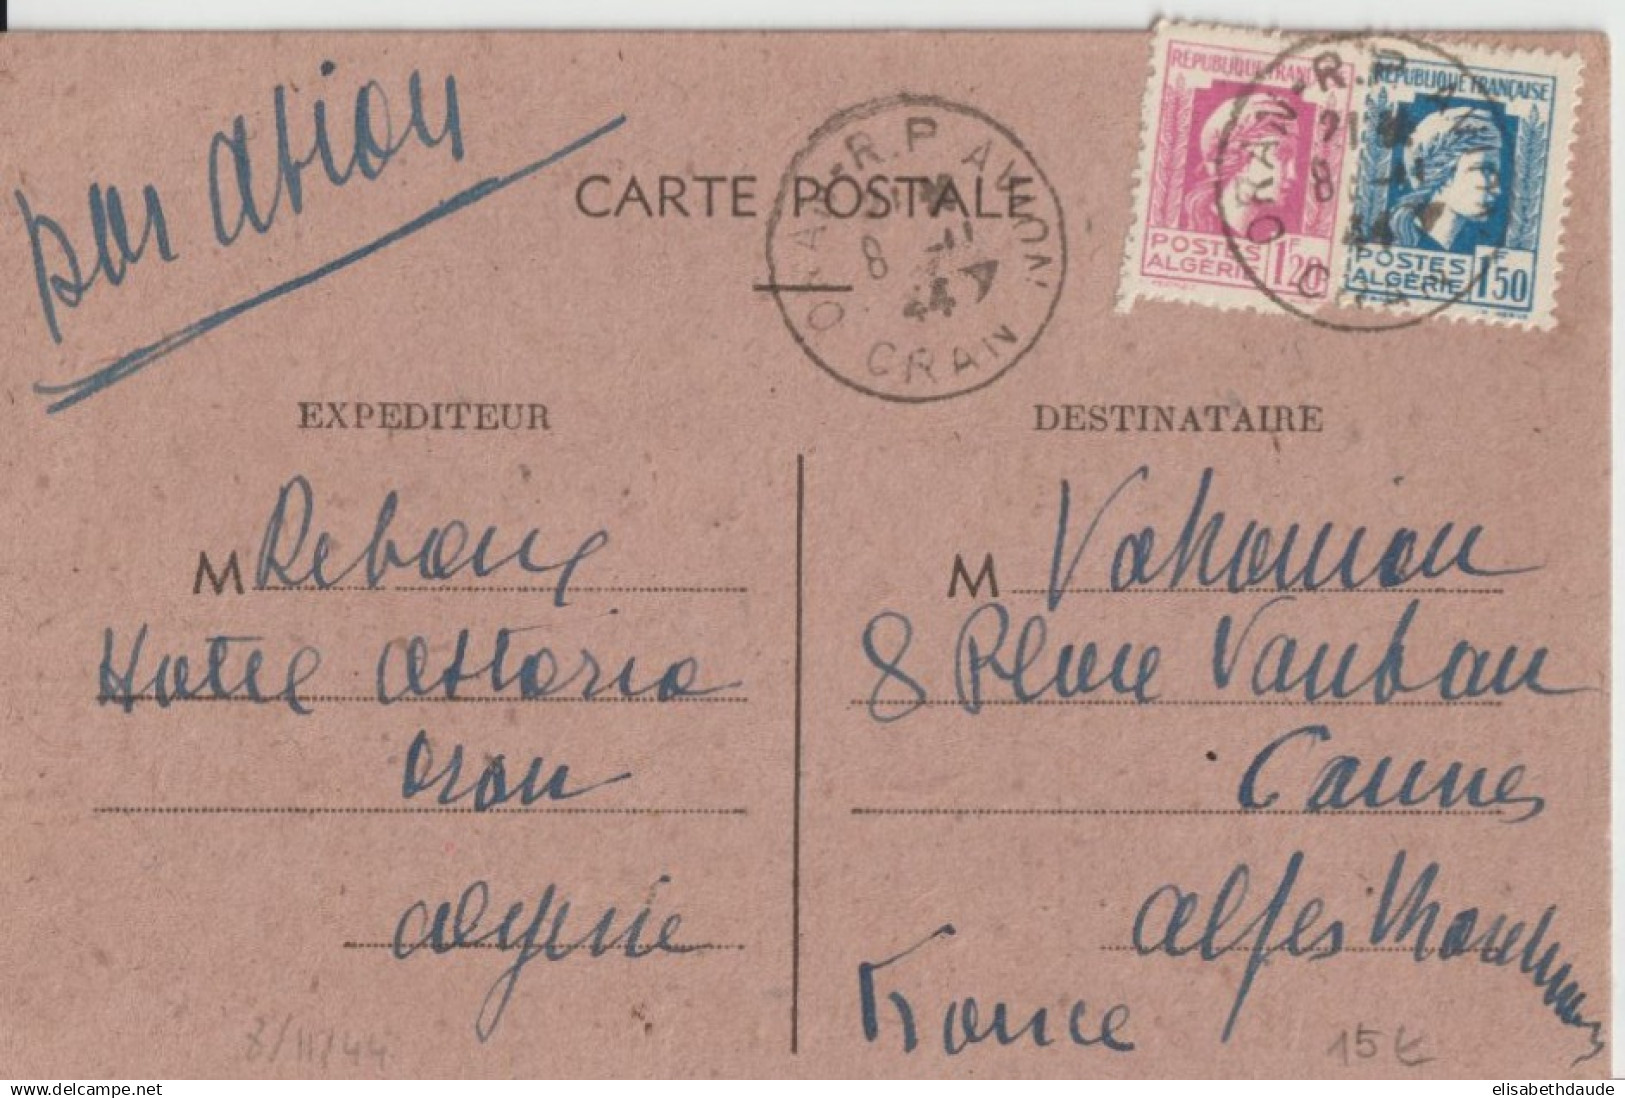 par avion
CARTE POSTALE
ORAN-R.P. AVION
8 -11
44
ORAN
RÉPUBLIQUE FRANÇAISE
POSTES
ALGÉRIE
1F20
RÉPUBLIQUE FRANÇAISE
POSTES
ALGÉRIE
1F50
ORAN-R.P. AVION
21
8 -11
44
ORAN
EXPEDITEUR
M Rebouy
Hotel Astoria
Oran
Algerie
DESTINATAIRE
M Vahanian
8 Place Vauban
Cannes
Alpes Maritimes
France
8/11/44
15€
elisabethdaude